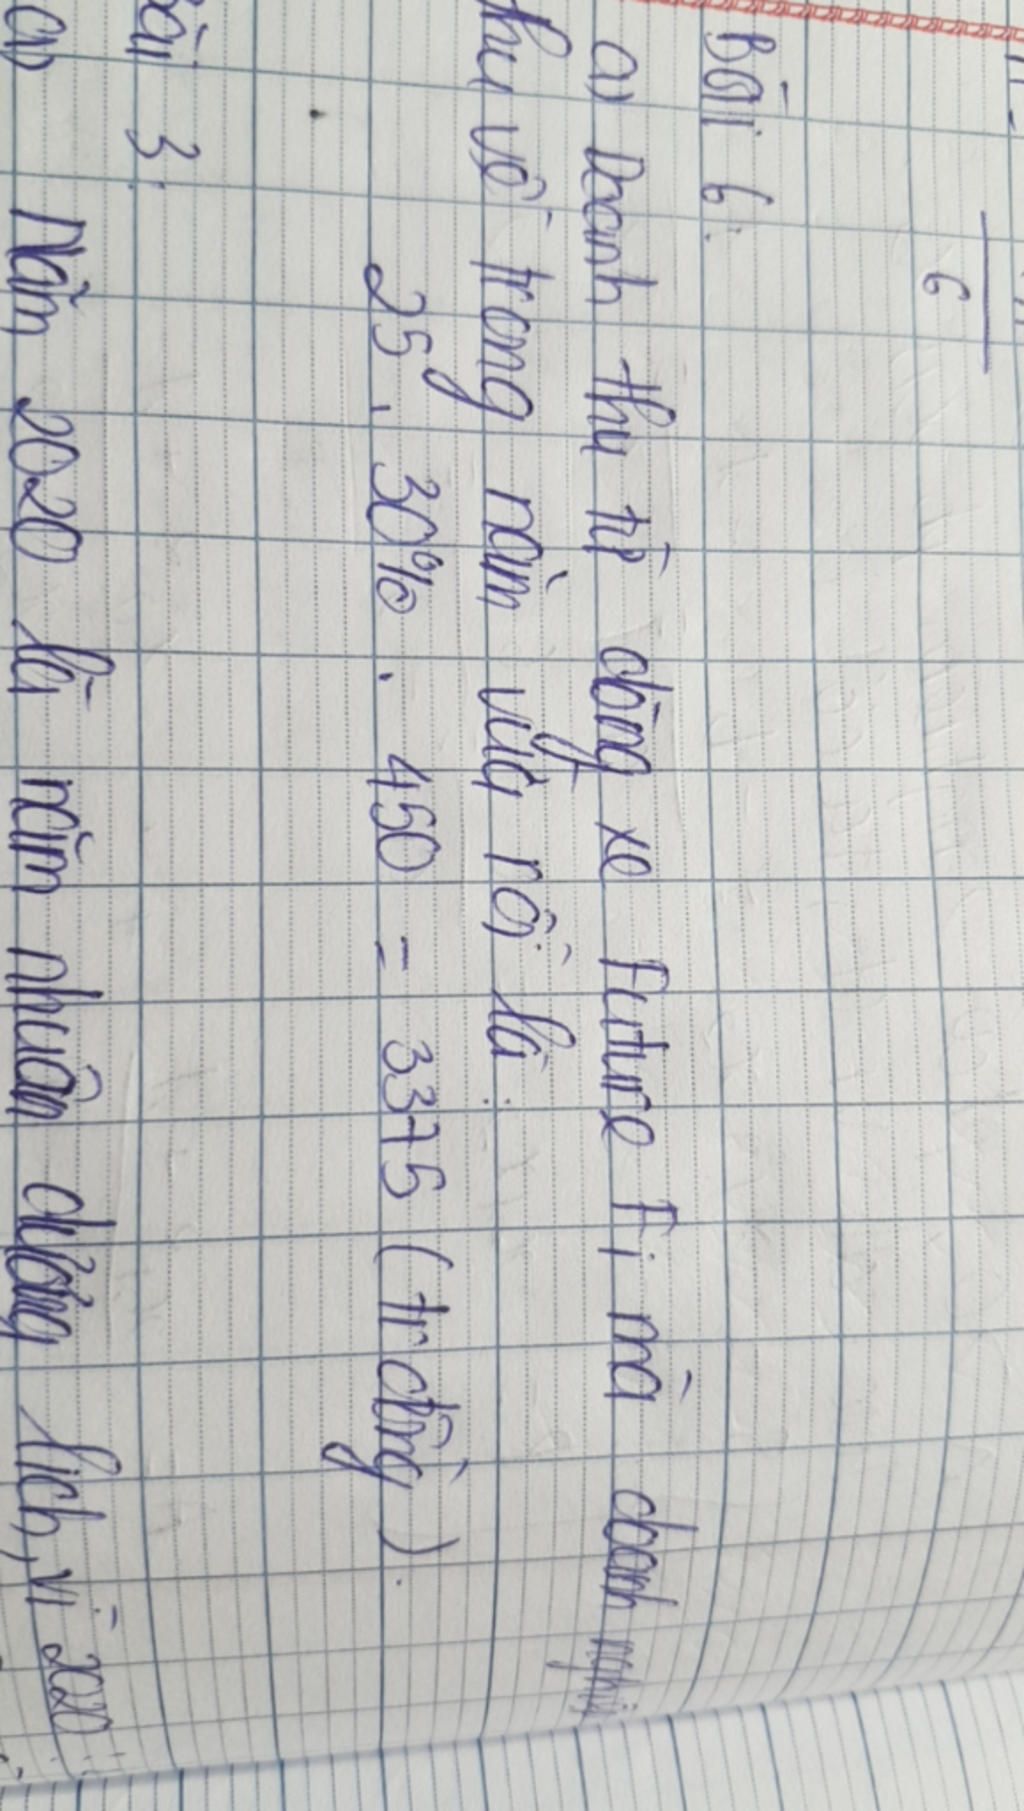 6
Bài 6:
a) Doanh thu từ dòng xe Future Fi mà doanh
thu về trong năm vừa rồi là:
25 . 30% . 450 = 3375 (tr đồng).
Bài 3:
a) Năm 2020 là năm nhuận dương lịch, vì 2020